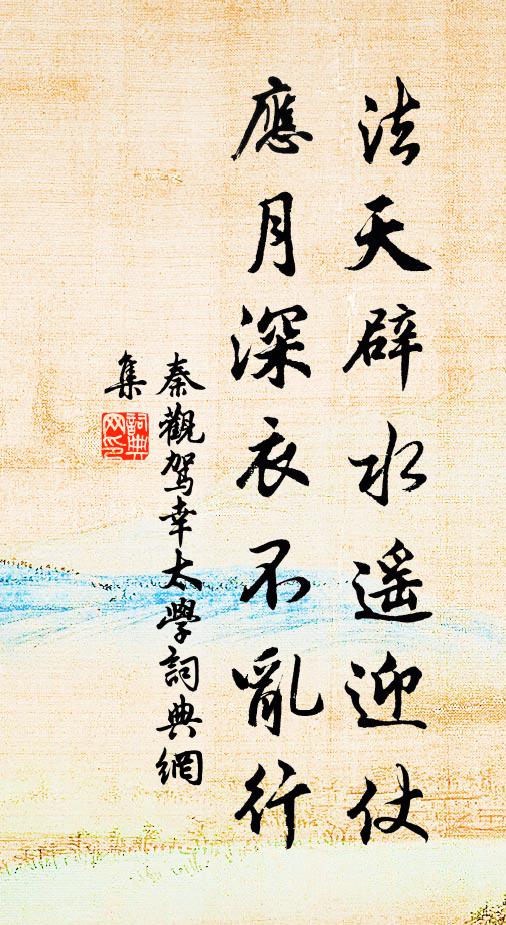 法天辟水遥迎仗
應月深衣不亂行
秦觀駕幸太學詞典網
集
詞典
网印